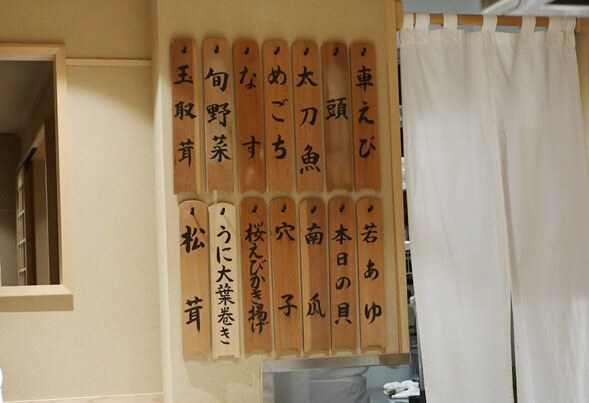 車えび
頭
太刀魚
めごち
なす
旬野菜
玉取茸
若あゆ
本日の貝
南瓜
穴子
桜えびかき揚げ
うに大葉巻き
松茸